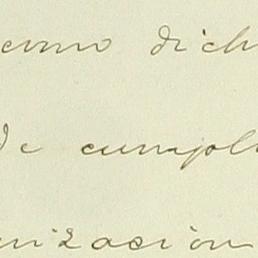 como dich
de cumpl
nización